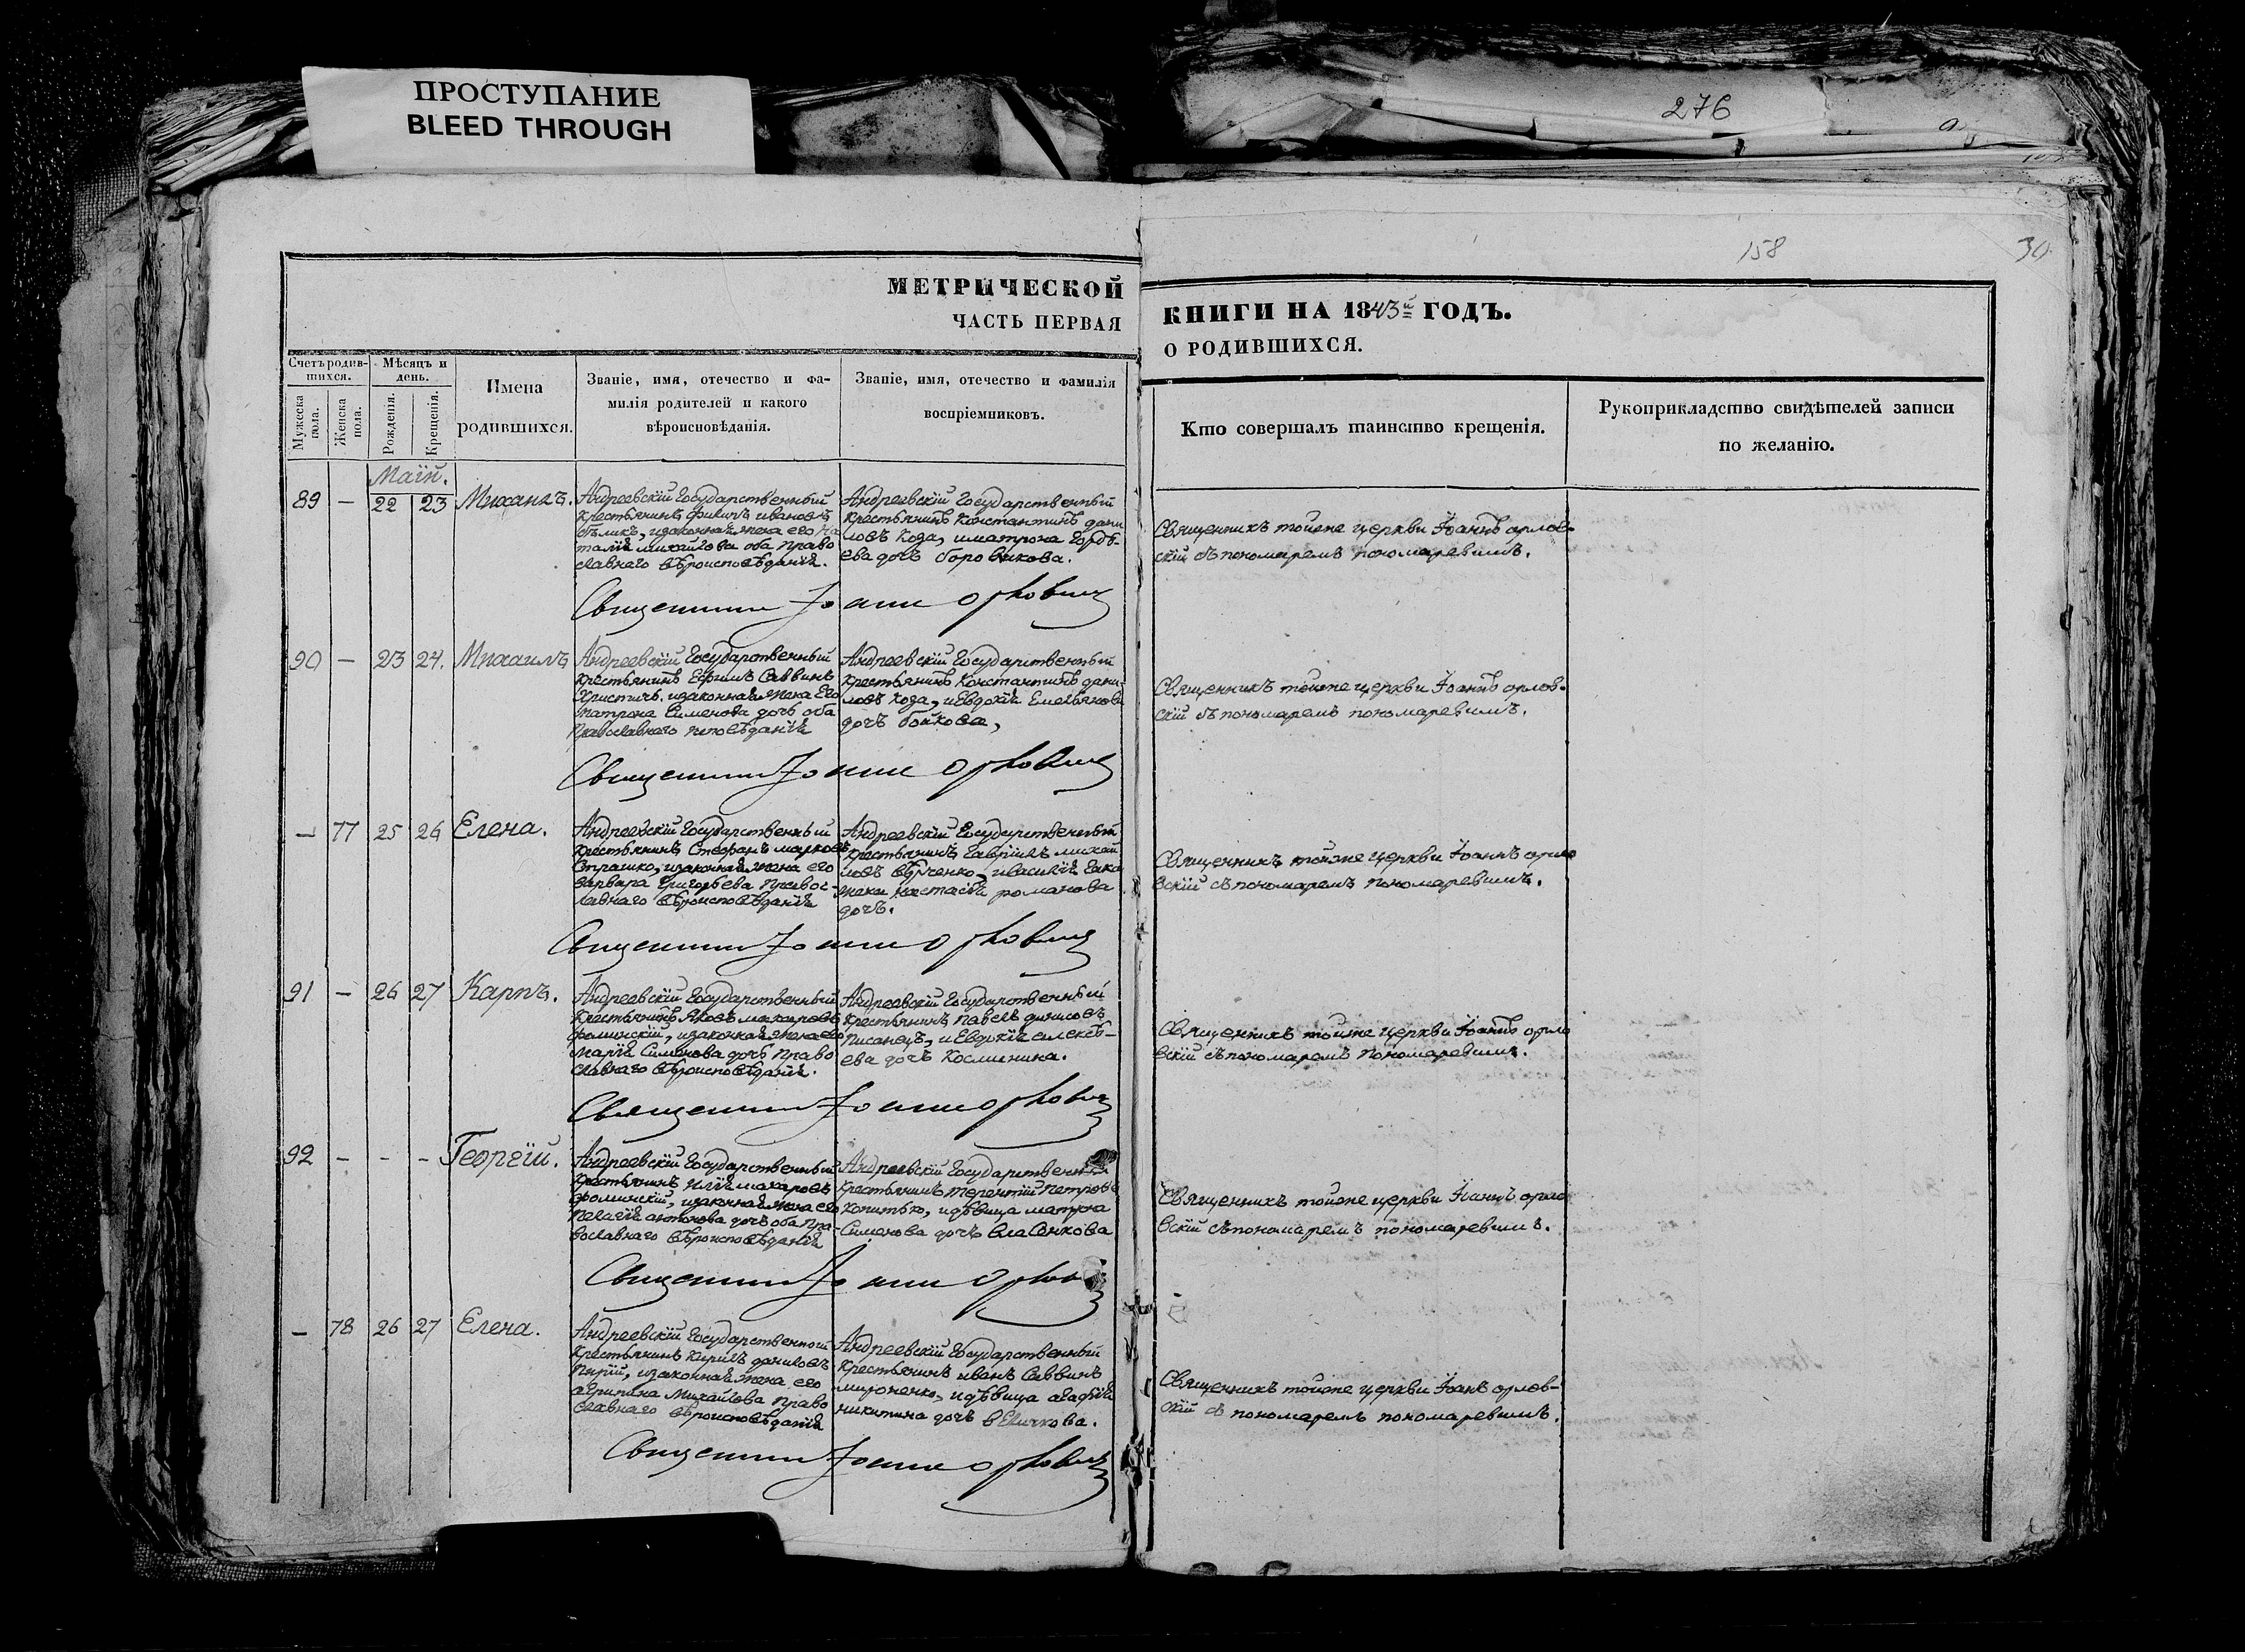 ПРОСТУПАНИЕ
BLEED THROUGH
276
158
30
МЕТРИЧЕСКОЙ
ЧАСТЬ ПЕРВАЯ
КНИГИ НА 1843й ГОДЪ.
О РОДИВШИХСЯ.
Счетъ родив-
шихся.
Мужеска
пола.
Женска
пола.
Мѣсяцъ и
день.
Рожденія.
Крещенія.
Имена
родившихся.
Званіе, имя, отечество и фа-
милія родителей и какого
вѣроисповѣданія.
Званіе, имя, отечество и фамилія
воспріемниковъ.
Кто совершалъ таинство крещенія.
Рукоприкладство свидѣтелей записи
по желанію.
Маій.
89 — 22 23 Михаилъ.
Андреевскій Государственный
крестьянинъ ивановъ
бѣликъ, изаконная жена его На
талія михайлова оба право
славнаго вѣроисповѣданія.
Андреевскій Государственный
крестьянинъ Константинъ дани
ловъ коза, иматрона Гордѣ-
ева дочь боровикова.
Священникъ тойже церкви Іоаннъ орлов-
скій съ пономаремъ пономаревимъ.
Священникъ Іоаннъ Орловскій
90 — 23 24. Михаилъ
Андреевскій Государственный
крестьянинъ Ефимъ Саввинъ
Христичъ. изаконная жена Его
матрона Симонова дочь оба
Православнаго исповѣданія
Андреевскій Государственный
крестьянинъ Константинъ дани-
ловъ коза, иЕвдокія Емельянова
дочь бойкова,
Священникъ тойже церкви Іоаннъ орлов-
скій съ пономаремъ пономаревимъ.
Священникъ Іоаннъ Орловскій
— 77 25 26 Елена.
Андреевскій Государственный
крестьянинъ Стефанъ марковъ
Страшко, изаконная жена его
варвара Григорьева Правос-
лавнаго вѣроисповѣданія
Андреевскій Государственный
крестьянинъ Гавріилъ михай
ловъ
жена настасія романова
дочь.
Священникъ тойже церкви Іоаннъ орло
вскій съ пономаремъ пономаревимъ.
Священникъ Іоаннъ Орловскій
91 — 26 27 Карпъ.
Андреевскій Государственный
крестьянинъ Яковъ макаровъ
фоминскій, изаконная жена его
марія Симонова дочь Право
славнаго вѣроисповѣданія.
Андреевскій Государственный
крестьянинъ павелъ
писанецъ, иЕвдокія алексѣ-
ева дочь Косминина.
Священникъ тойже церкви Іоаннъ орло
вскій съ пономаремъ пономаревимъ.
Священникъ Іоаннъ Орловскій
92 — - - Георгій.
Андреевскій Государственный
крестьянинъ Илія макаровъ
фоминскій, изаконная жена его
Пелагія антонова дочь оба Пра-
вославнаго вѣроисповѣданія
Андреевскій Государственный
крестьянинъ терентій Петровъ
копитько, идѣвица матрона
Симонова дочь власенкова
Священникъ тойже церкви Іоаннъ орло
вскій съ пономаремъ пономаревимъ.
Священникъ Іоаннъ Орловскій
— 78 26 27 Елена.
Андреевскій Государственной
крестьянинъ кирилъ даниловъ
изаконная жена его
агрипина Михайлова право
славнаго вѣроисповѣданія
Андреевскій Государственный
крестьянинъ иванъ Саввинъ
мироненко, идѣвица агафія
никитина дочь величкова.
Священникъ тойже церкви Іоанъ орлов-
скій съ пономаремъ пономаревимъ.
Священникъ Іоаннъ Орловскій